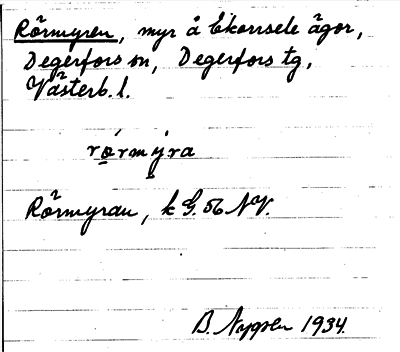 Rörmyren, myr å Ekorrsele ägor,
Degerfors sn, Degerfors tg,
Västerb. l.
rørmyra
Rörmyran, k G. 56 NV.
B. Nygren 1934.